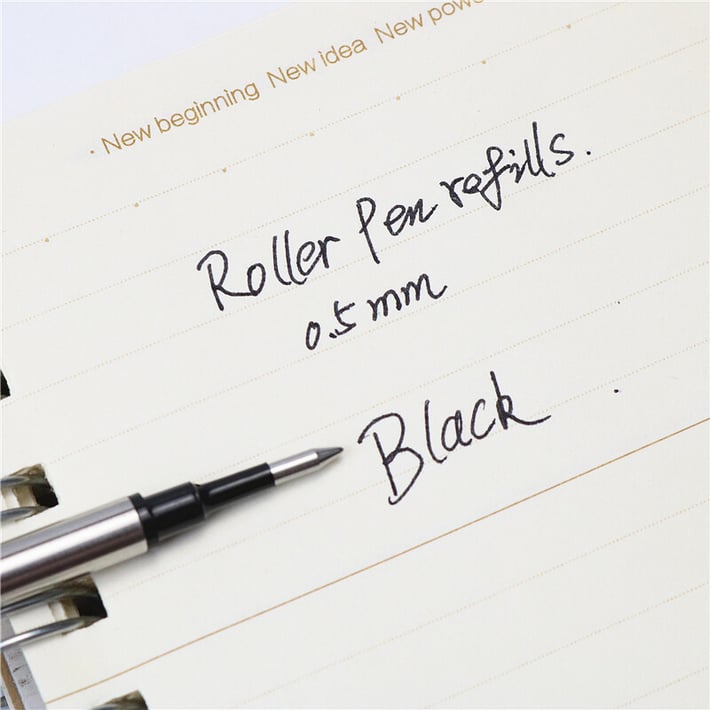 · New beginning New idea New powe
Roller Pen refills.
0.5 mm
Black